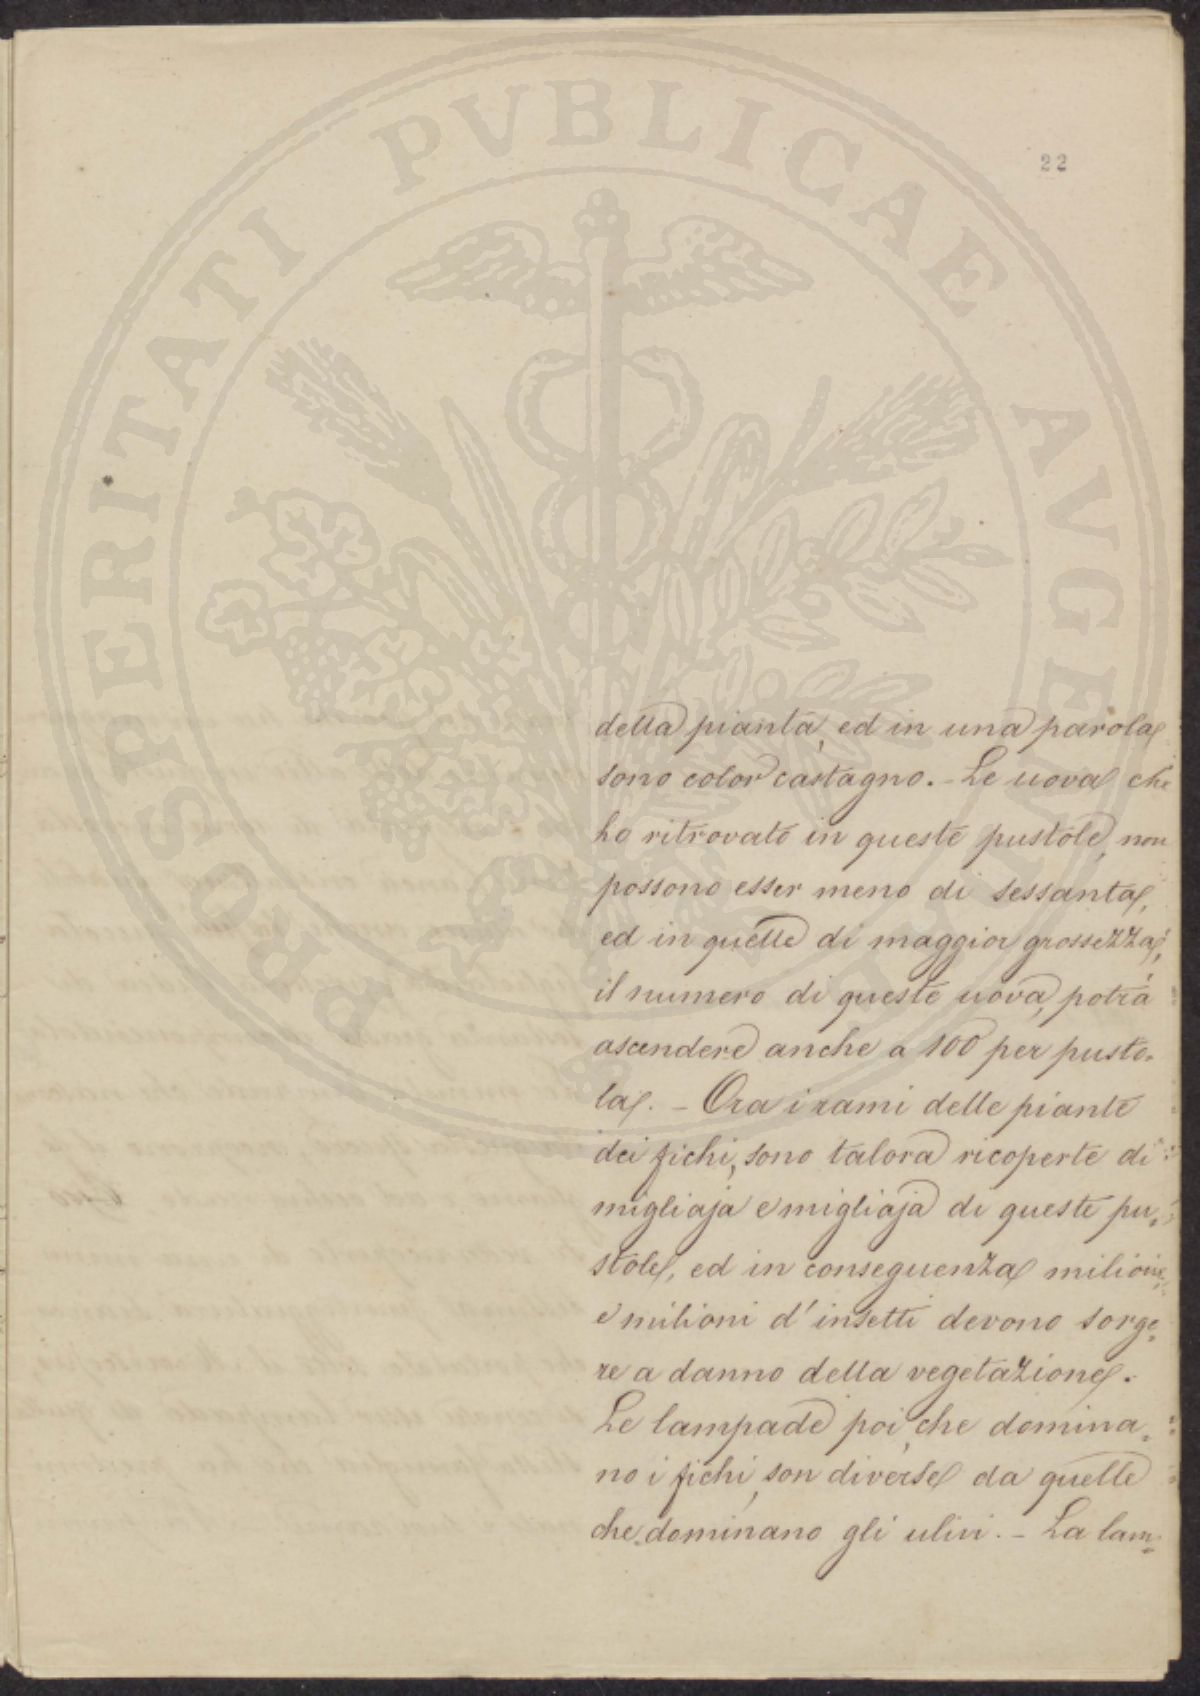 22
PROSPERITATI PVBLICAE AVGENDAE
della pianta, ed in una parola
sono color castagno. - Le uova che
ho ritrovate in queste pustole, non
possono esser meno di sessanta,
ed in quelle di maggior grossezza,
il numero di queste uova, potrà
ascendere anche a 100 per pusto=
la. - Ora i rami delle piante
dei fichi, sono talora ricoperte di
migliaja e migliaja di queste pu=
stole, ed in conseguenza milioni
e milioni d'insetti devono sorge=
re a danno della vegetazione.
Le lampade poi, che domina=
no i fichi, son diverse da quelle
che dominano gli ulivi. - La lam=